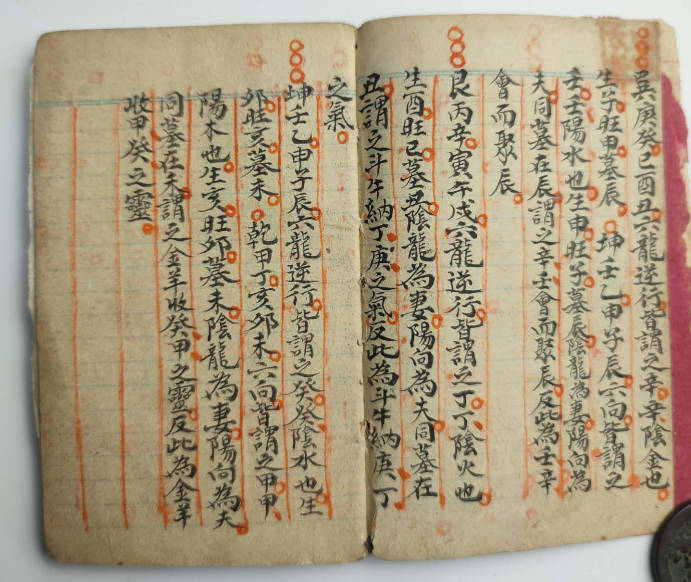 巽庚癸巳酉丑六龍逆行皆謂之辛辛陰金也
生子旺申墓辰坤壬乙申子辰六向皆謂之
壬壬陽水也生申旺子墓辰陰龍為妻陽向為
夫同墓在辰謂之辛壬會而聚辰反此為壬辛
會而聚辰
艮丙辛寅午戌六龍逆行皆謂之丁丁陰火也
生酉旺巳墓丑陰龍為妻陽向為夫同墓在
丑謂之斗牛納丁庚之氣反此為斗牛納庚丁
之氣
坤壬乙申子辰六龍逆行皆謂之癸癸陰水也生
卯旺亥墓未乾甲丁亥卯未六向皆謂之甲甲
陽木也生亥旺卯墓未陰龍為妻陽向為夫
同墓在未謂之金羊收癸甲之靈反此為金羊
收甲癸之靈